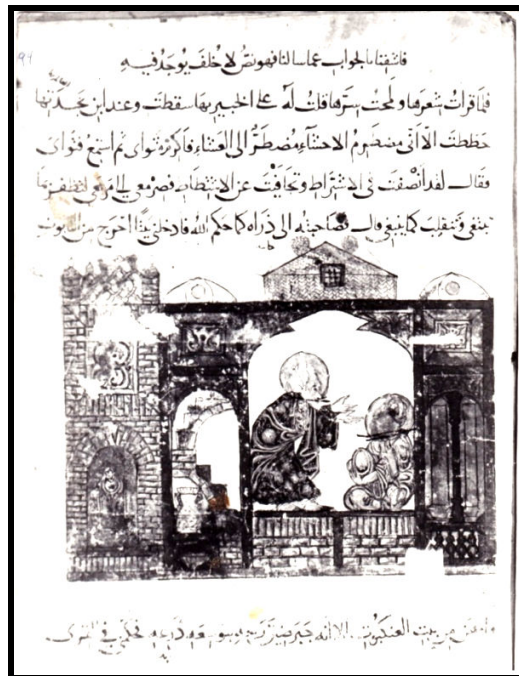 94
فاشفنا بالجواب عما سالنا فهو نص لا خلف يوجد فيه
فلما قرات شعرها ولمحت سرها قلت له على الخبير بها سقطت وعند ابن بجدتها
حططت الا انى مضطرم الاحشاء مضطر الى العشاء فاكرم مثواى ثم استمع فتواى
فقال لقد انصفت فى الاشتراط وتجافيت عن الاشتطاط فصر معى الى مربعى لتظفر بما
تبتغى وتنقلب كما ينبغى قال فصاحبته الى ذراه كما حكم الله فادخلنى بيتا احرج من التابوت
واوهن من بيت العنكبوت الا انه جبر ضيق ربعه بتوسعة ذرعه فحكمنى فى القرى